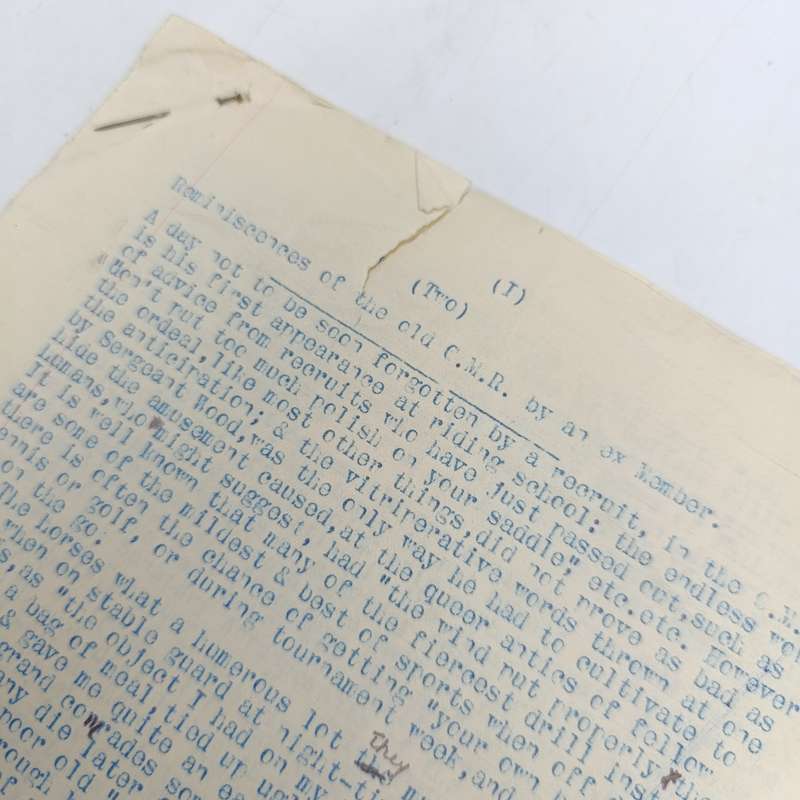 (I)
(Two)
Reminiscences of the old C.M.R. by an ex Member.
A day not to be soon forgotten by a recruit, in the C.M.
is his first appearance at riding school: the endless
of advice from recruits who have just passed out, such as
"don't put too much polish on your saddle", etc. etc. However
the ordeal, like most other things, did not prove as bad as
the anticipation; & the vitriperative words thrown at one
by Sergeant Wood, was the only way he had to cultivate to
hide the amusement caused, at the queer antics of fellow
humans, who might suggest, had "the wind put properly
It is well known that many of the fiercest drill
are some of the mildest & best of sports when off
there is often the chance of getting "your own
ennis or golf, or during tournament week, and
on the go.
The horses what a humerous lot they
when on stable guard at
as "the object I had on my
a bag of meal, tied up
& gave me quite an
grand comrades
die later
poor old